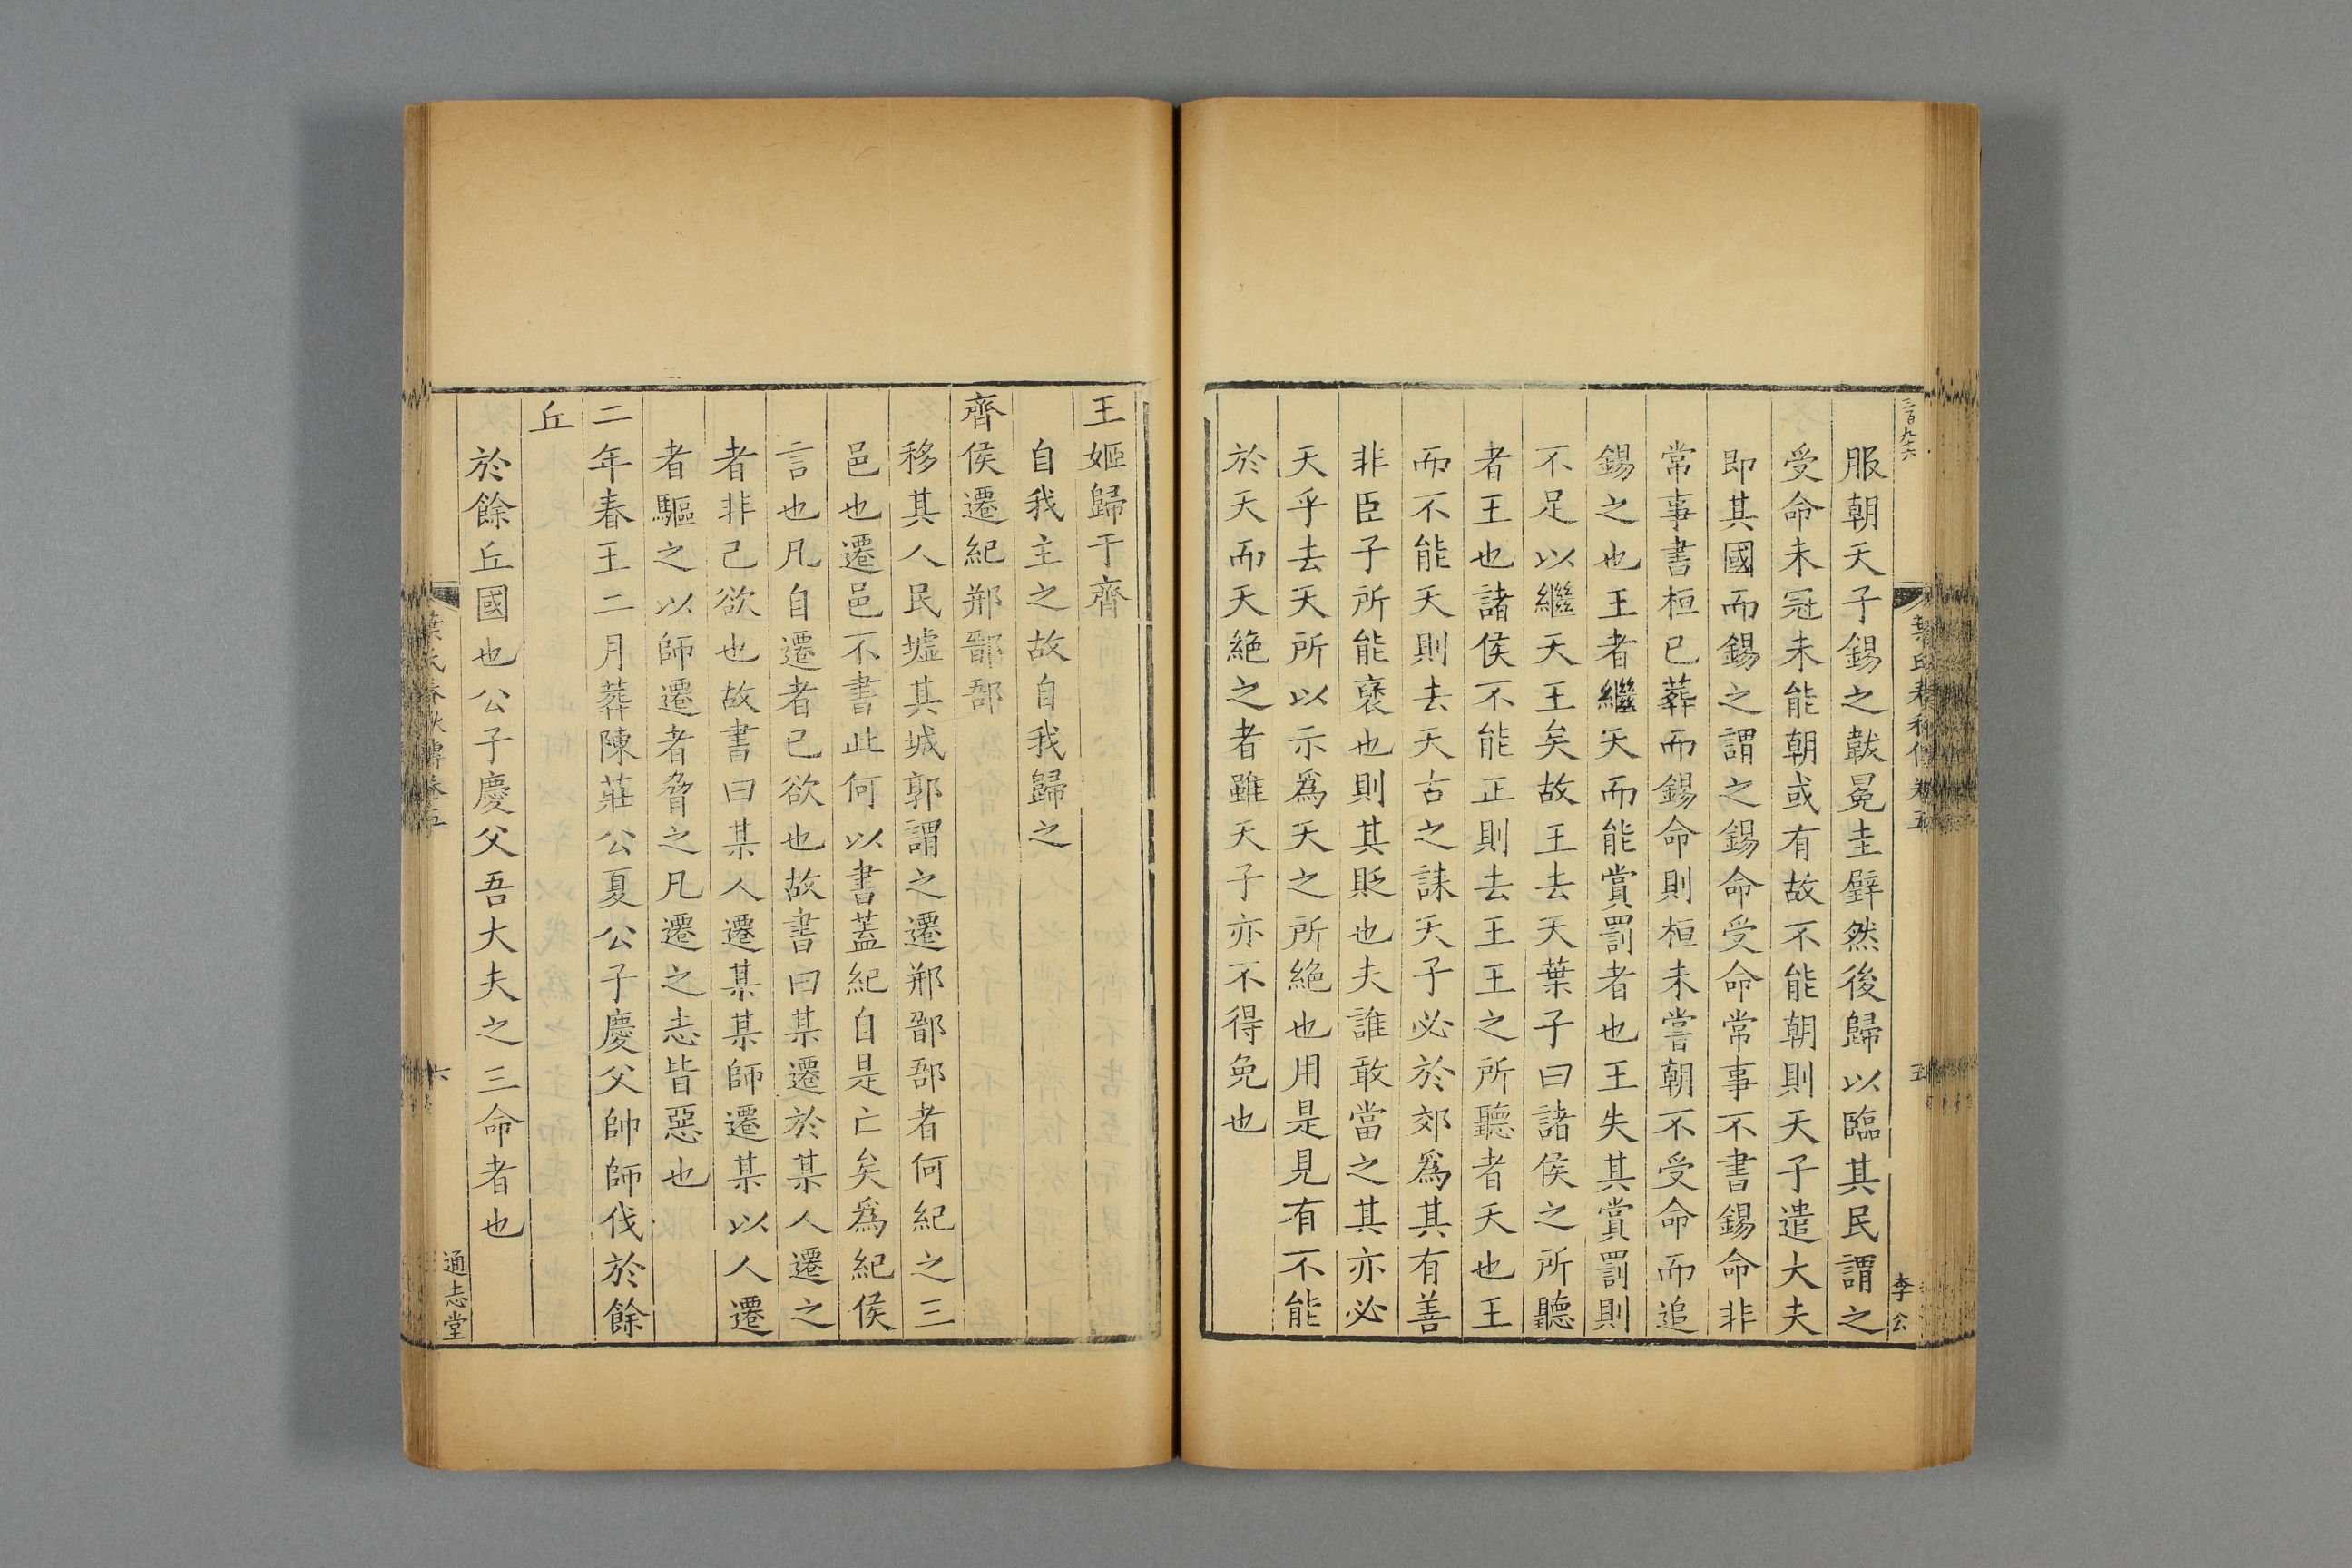 三百九十六
葉氏春秋傳卷五
五
李公
服朝天子錫之韍冕圭璧然後歸以臨其民謂之
受命未冠未能朝或有故不能朝則天子遣大夫
即其國而錫之謂之錫命受命常事不書錫命非
常事書桓已葬而錫命則桓未嘗朝不受命而追
錫之也王者繼天而能賞罰者也王失其賞罰則
不足以繼天王矣故王去天葉子曰諸侯之所聽
者王也諸侯不能正則去王王之所聽者天也王
而不能天則去天古之誄天子必於郊爲其有善
非臣子所能褒也則其貶也夫誰敢當之其亦必
天乎去天所以示爲天之所絶也用是見有不能
於天而天絶之者雖天子亦不得免也
王姬歸于齊
自我主之故自我歸之
齊侯遷紀郱鄑郚
移其人民墟其城郭謂之遷郱鄑郚者何紀之三
邑也遷邑不書此何以書蓋紀自是亡矣爲紀侯
言也凡自遷者已欲也故書曰某遷於某人遷之
者非己欲也故書曰某人遷某某師遷某以人遷
者驅之以師遷者脅之凡遷之志皆惡也
二年春王二月葬陳莊公夏公子慶父帥師伐於餘
丘
於餘丘國也公子慶父吾大夫之三命者也
葉氏春秋傳卷五
六
通志堂